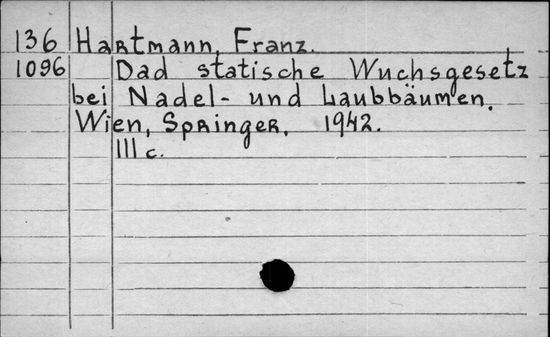 136 Hartmann, Franz.
1096 Dad statische Wuchsgesetz
bei Nadel- und Laubbäumen.
Wien, Springer. 1942.
III c.